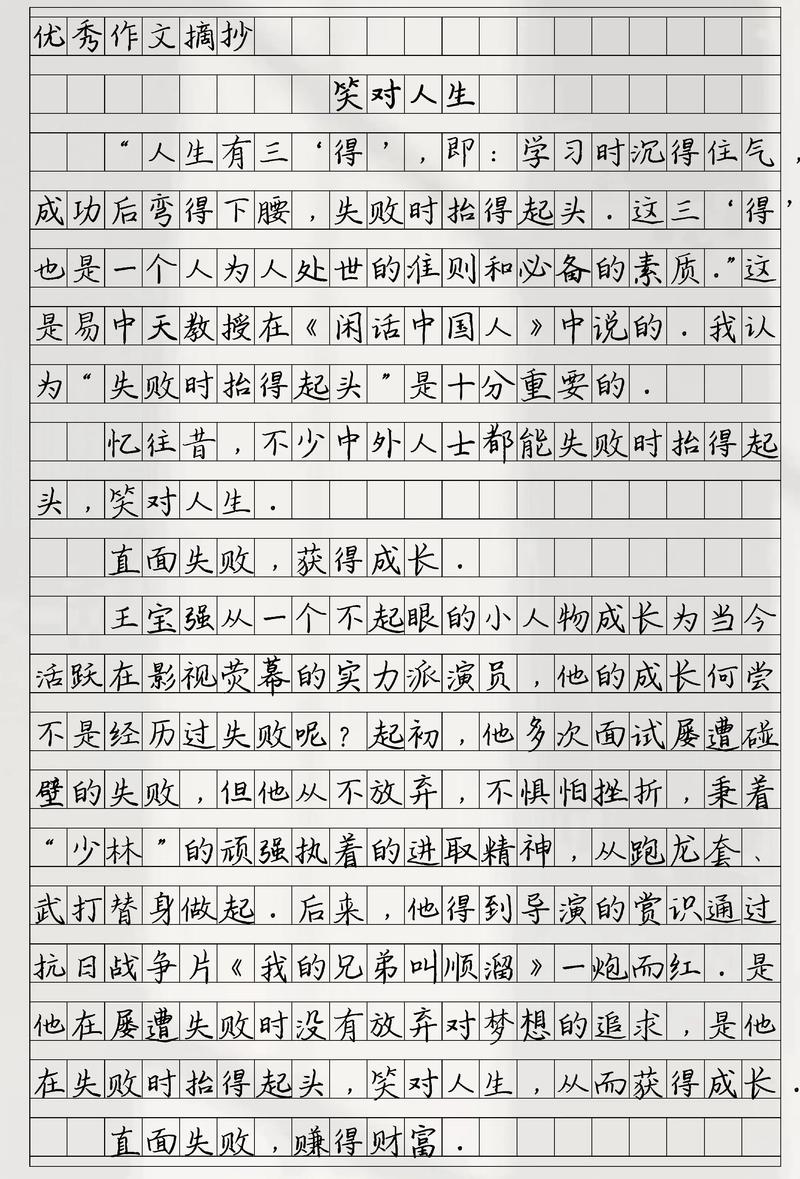 优秀作文摘抄
笑对人生
“人生有三‘得’，即：学习时沉得住气，
成功后弯得下腰，失败时抬得起头．这三‘得’
也是一个人为人处世的准则和必备的素质．”这
是易中天教授在《闲话中国人》中说的．我认
为“失败时抬得起头”是十分重要的．
忆往昔，不少中外人士都能失败时抬得起
头，笑对人生．
直面失败，获得成长．
王宝强从一个不起眼的小人物成长为当今
活跃在影视荧幕的实力派演员，他的成长何尝
不是经历过失败呢？起初，他多次面试屡遭碰
壁的失败，但他从不放弃，不惧怕挫折，秉着
“少林”的顽强执着的进取精神，从跑龙套、
武打替身做起．后来，他得到导演的赏识通过
抗日战争片《我的兄弟叫顺溜》一炮而红．是
他在屡遭失败时没有放弃对梦想的追求，是他
在失败时抬得起头，笑对人生，从而获得成长．
直面失败，赚得财富．